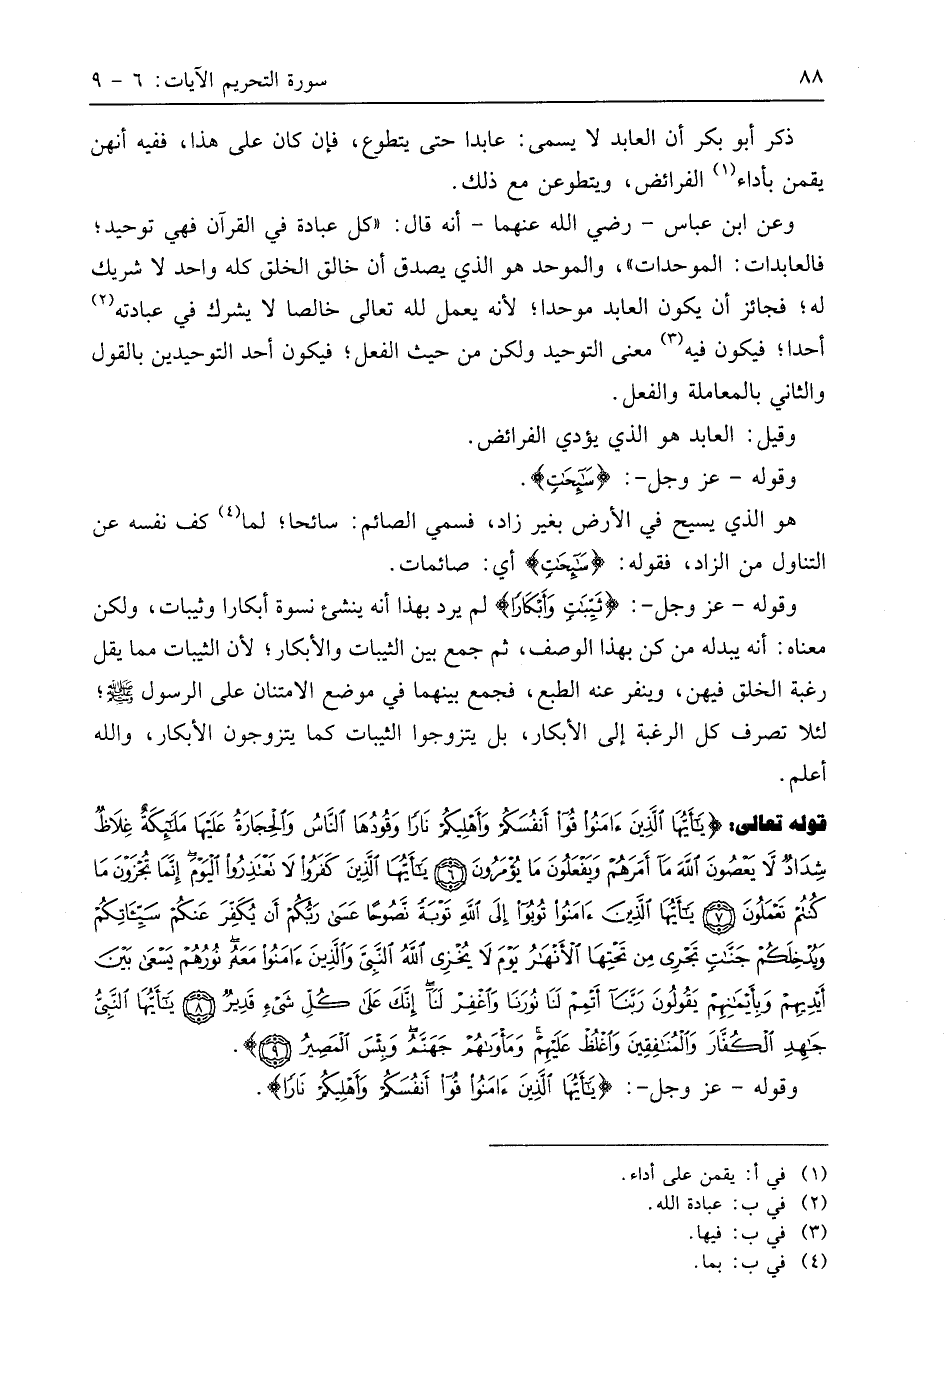 ٨٨
سورة التحريم الآيات: ٦ - ٩
ذكر أبو بكر أن العابد لا يسمى: عابدا حتى يتطوع، فإن كان على هذا، ففيه أنهن
يقمن بأداء(١) الفرائض، ويتطوعن مع ذلك.
وعن ابن عباس - رضي الله عنهما - أنه قال: «كل عبادة في القرآن فهي توحيد؛
فالعابدات: الموحدات»، والموحد هو الذي يصدق أن خالق الخلق كله واحد لا شريك
له؛ فجائز أن يكون العابد موحدا؛ لأنه يعمل لله تعالى خالصا لا يشرك في عبادته(٢)
أحدا؛ فيكون فيه(٣) معنى التوحيد ولكن من حيث الفعل؛ فيكون أحد التوحيدين بالقول
والثاني بالمعاملة والفعل.
وقيل: العابد هو الذي يؤدي الفرائض.
وقوله - عز وجل-: ﴿سَٰٓئِحَٰتٖ﴾.
هو الذي يسيح في الأرض بغير زاد، فسمي الصائم: سائحا؛ لما(٤) كف نفسه عن
التناول من الزاد، فقوله: ﴿سَٰٓئِحَٰتٖ﴾ أي: صائمات.
وقوله - عز وجل-: ﴿ثَيِّبَٰتٖ وَأَبۡكَارٗا﴾ لم يرد بهذا أنه ينشئ نسوة أبكارا وثيبات، ولكن
معناه: أنه يبدله من كن بهذا الوصف، ثم جمع بين الثيبات والأبكار؛ لأن الثيبات مما يقل
رغبة الخلق فيهن، وينفر عنه الطبع، فجمع بينهما في موضع الامتنان على الرسول ﷺ؛
لئلا تصرف كل الرغبة إلى الأبكار، بل يتزوجوا الثيبات كما يتزوجون الأبكار، والله
أعلم.
قوله تعالى: ﴿يَٰٓأَيُّهَا ٱلَّذِينَ ءَامَنُواْ قُوٓاْ أَنفُسَكُمۡ وَأَهۡلِيكُمۡ نَارٗا وَقُودُهَا ٱلنَّاسُ وَٱلۡحِجَارَةُ عَلَيۡهَا مَلَٰٓئِكَةٌ غِلَاظٞ
شِدَادٞ لَّا يَعۡصُونَ ٱللَّهَ مَآ أَمَرَهُمۡ وَيَفۡعَلُونَ مَا يُؤۡمَرُونَ ٦ يَٰٓأَيُّهَا ٱلَّذِينَ كَفَرُواْ لَا تَعۡتَذِرُواْ ٱلۡيَوۡمَۖ إِنَّمَا تُجۡزَوۡنَ مَا
كُنتُمۡ تَعۡمَلُونَ ٧ يَٰٓأَيُّهَا ٱلَّذِينَ ءَامَنُواْ تُوبُوٓاْ إِلَى ٱللَّهِ تَوۡبَةٗ نَّصُوحًا عَسَىٰ رَبُّكُمۡ أَن يُكَفِّرَ عَنكُمۡ سَيِّـَٔاتِكُمۡ
وَيُدۡخِلَكُمۡ جَنَّٰتٖ تَجۡرِي مِن تَحۡتِهَا ٱلۡأَنۡهَٰرُ يَوۡمَ لَا يُخۡزِي ٱللَّهُ ٱلنَّبِيَّ وَٱلَّذِينَ ءَامَنُواْ مَعَهُۥۖ نُورُهُمۡ يَسۡعَىٰ بَيۡنَ
أَيۡدِيهِمۡ وَبِأَيۡمَٰنِهِمۡ يَقُولُونَ رَبَّنَآ أَتۡمِمۡ لَنَا نُورَنَا وَٱغۡفِرۡ لَنَآۖ إِنَّكَ عَلَىٰ كُلِّ شَيۡءٖ قَدِيرٞ ٨ يَٰٓأَيُّهَا ٱلنَّبِيُّ
جَٰهِدِ ٱلۡكُفَّارَ وَٱلۡمُنَٰفِقِينَ وَٱغۡلُظۡ عَلَيۡهِمۡۚ وَمَأۡوَىٰهُمۡ جَهَنَّمُۖ وَبِئۡسَ ٱلۡمَصِيرُ ٩﴾.
وقوله - عز وجل-: ﴿يَٰٓأَيُّهَا ٱلَّذِينَ ءَامَنُواْ قُوٓاْ أَنفُسَكُمۡ وَأَهۡلِيكُمۡ نَارٗا﴾.
(١) في أ: يقمن على أداء.
(٢) في ب: عبادة الله.
(٣) في ب: فيها.
(٤) في ب: بما.